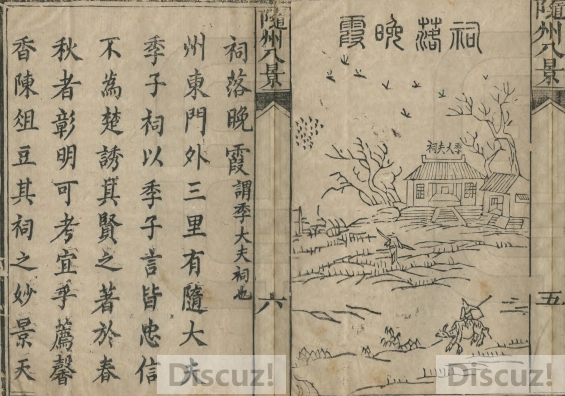 隨州八景
五
祠落晚霞
季大夫祠
隨州八景
六
祠落晚霞謂季大夫祠也
州東門外三里有隨大夫
季子祠以季子言皆忠信
不為楚誘其賢之著於春
秋者彰明可考宜乎薦馨
香陳俎豆其祠之妙景天
Discuz!
Discuz!